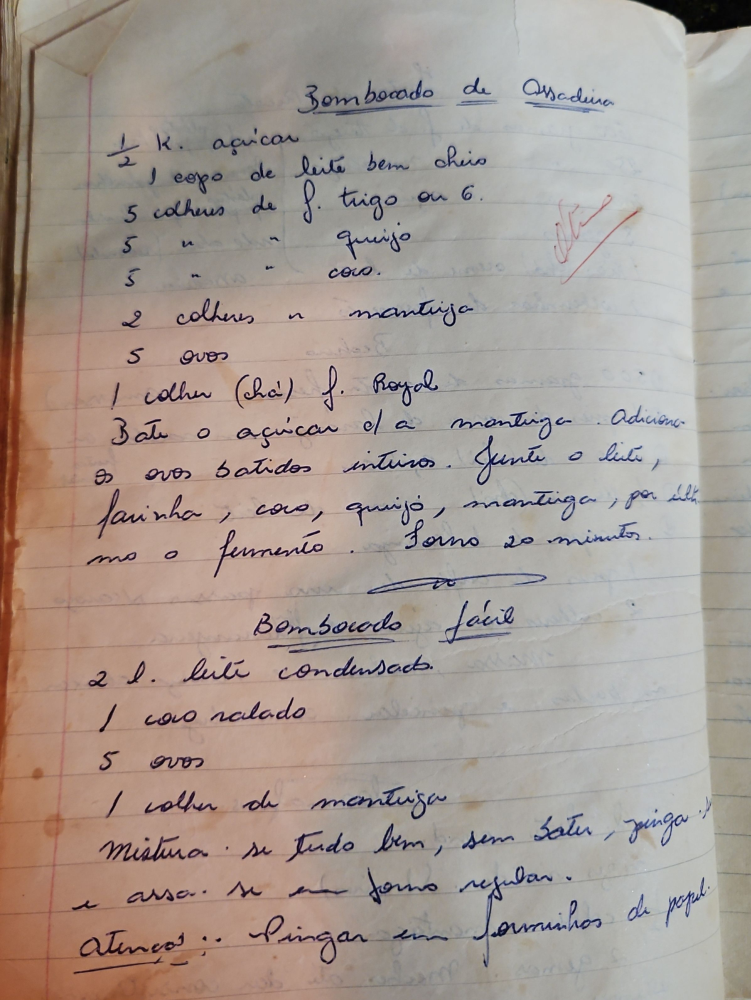 Bombocado de Assadeira
1/2 K. açúcar
1 copo de leite bem cheio
5 colheres de f. trigo ou 6.
5 " " queijo
5 " " coco.
2 colheres " manteiga
5 ovos
1 colher (chá) f. Royal
Bate o açúcar c/ a manteiga. Adiciona
os ovos batidos inteiros. Junte o leite,
farinha, coco, queijo, manteiga, por últi
mo o fermento. Forno 20 minutos.
Bombocado fácil
2 l. leite condensado.
1 coco ralado
5 ovos
1 colher de manteiga
Mistura-se tudo bem, sem bater, pinga-s
e assa-se em forno regular.
Atenção:. Pingar em forminhas de papel.